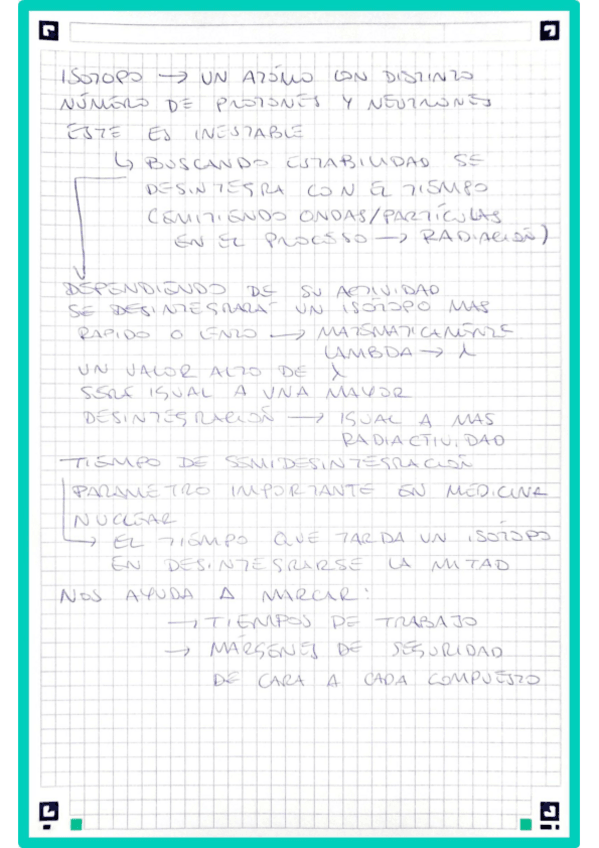 ISÓTOPO → UN ATÓMO CON DISTINTO
NÚMERO DE PROTONES Y NEUTRONES
ESTE ES INESTABLE
↳ BUSCANDO ESTABILIDAD SE
DESINTEGRA CON EL TIEMPO
(EMITIENDO ONDAS/PARTÍCULAS
EN EL PROCESO → RADIACIÓN)
DEPENDIENDO DE SU ACTIVIDAD
SE DESINTEGRARÁ UN ISÓTOPO MAS
RAPIDO O LENTO → MATEMATICAMENTE
LAMBDA → λ
UN VALOR ALTO DE λ
SERÁ IGUAL A UNA MAYOR
DESINTEGRACIÓN → IGUAL A MAS
RADIACTIVIDAD
TIEMPO DE SEMIDESINTEGRACIÓN
PARAMETRO IMPORTANTE EN MEDICINA
NUCLEAR
↳ EL TIEMPO QUE TARDA UN ISÓTOPO
EN DESINTEGRARSE LA MITAD
NOS AYUDA A MARCAR:
→ TIEMPOS DE TRABAJO
→ MÁRGENES DE SEGURIDAD
DE CARA A CADA COMPUESTO